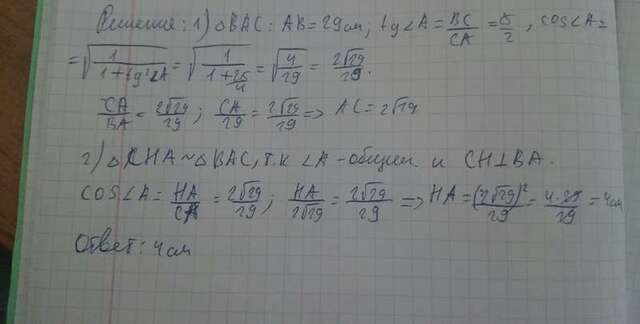 Решение: 1) △BAC: AB=29см; tg∠A = BC/CA = 5/2, cos∠A=
= √(1/(1+tg²∠A)) = √(1/(1+25/4)) = √(4/29) = 2√29/29.
CA/BA = 2√29/29; CA/29 = 2√29/29 => AC=2√29
2) △CHA ~ △BAC, т.к ∠A - общий и CH⊥BA.
COS∠A = HA/CA = 2√29/29; HA/2√29 = 2√29/29 => HA = (2√29)²/29 = 4·29/29 = 4см
Ответ: 4см